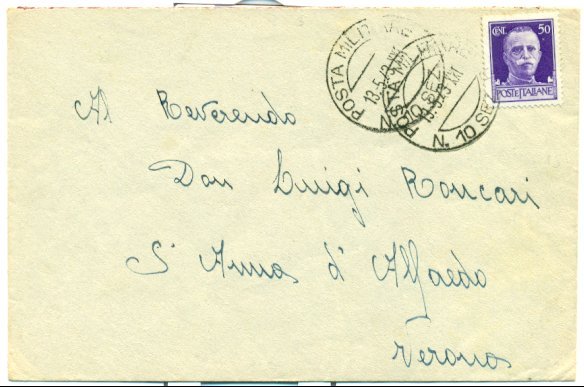 CENT. 50
POSTE ITALIANE
POSTA MILITARE
N. 10 SEZ.
POSTA MILITARE
N. 10 SEZ
Al Reverendo
Don Luigi Roncari
S. Anna d'Alfaedo
Verona